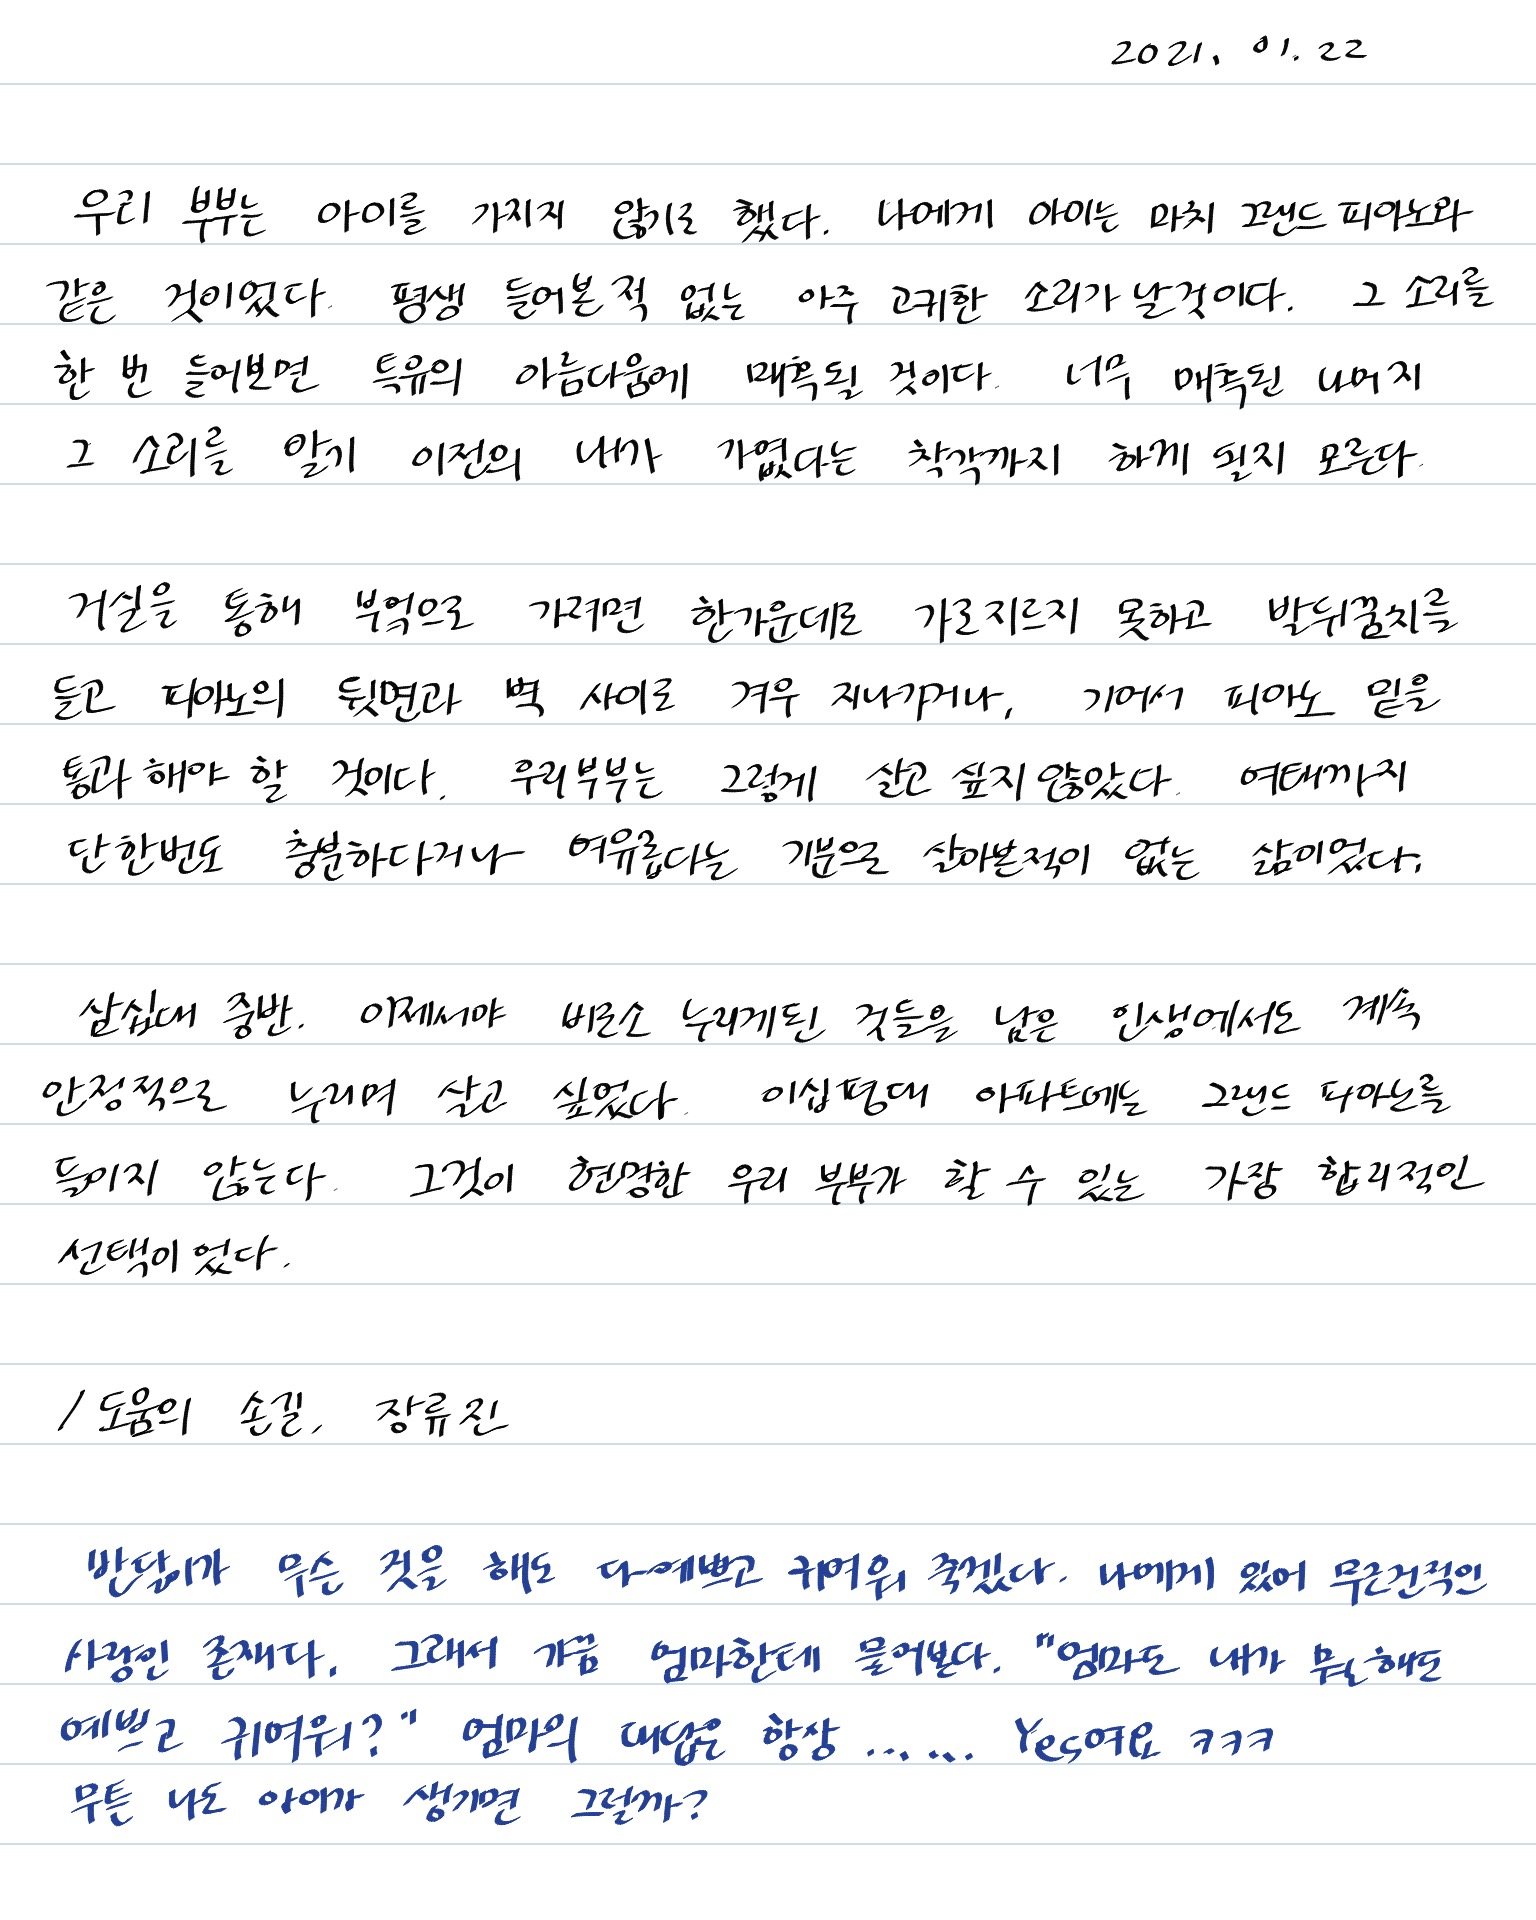 2021. 01. 22
우리 부부는 아이를 가지지 않기로 했다. 나에게 아이는 마치 그랜드 피아노와
같은 것이었다. 평생 들어본 적 없는 아주 고귀한 소리가 날 것이다. 그 소리를
한 번 들어보면 특유의 아름다움에 매혹될 것이다. 너무 매혹된 나머지
그 소리를 알기 이전의 내가 가엾다는 착각까지 하게 될지 모른다.
거실을 통해 부엌으로 가려면 한가운데로 가로지르지 못하고 발뒤꿈치를
들고 피아노의 뒷면과 벽 사이로 겨우 지나가거나, 기어서 피아노 밑을
통과해야 할 것이다. 우리 부부는 그렇게 살고 싶지 않았다. 여태까지
단 한번도 충분하다거나 여유롭다는 기분으로 살아본적이 없는 삶이었다.
삼십대 중반. 이제서야 비로소 누리게된 것들을 남은 인생에서도 계속
안정적으로 누리며 살고 싶었다. 이십평대 아파트에는 그랜드 피아노를
들이지 않는다. 그것이 현명한 우리 부부가 할 수 있는 가장 합리적인
선택이었다.
/ 도움의 손길, 장류진
반답이가 무슨 것을 해도 다 예쁘고 귀여워 죽겠다. 나에게 있어 무근건적인
사랑인 존재다. 그래서 가끔 엄마한테 물어본다. "엄마도 내가 뭘 해도
예쁘고 귀여워?" 엄마의 대답은 항상 ...... Yes여요 ㅋㅋㅋ
무튼 나도 아이가 생기면 그럴까?